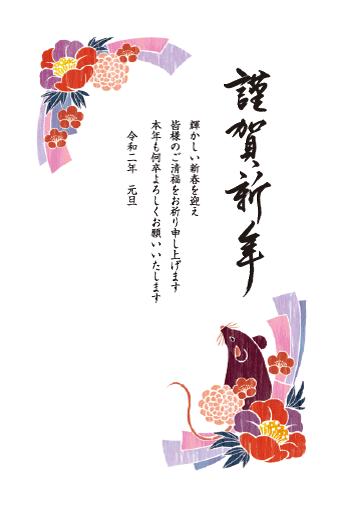 謹賀新年
輝かしい新春を迎え
皆様のご清福をお祈り申し上げます
本年も何卒よろしくお願いいたします
令和二年　元旦